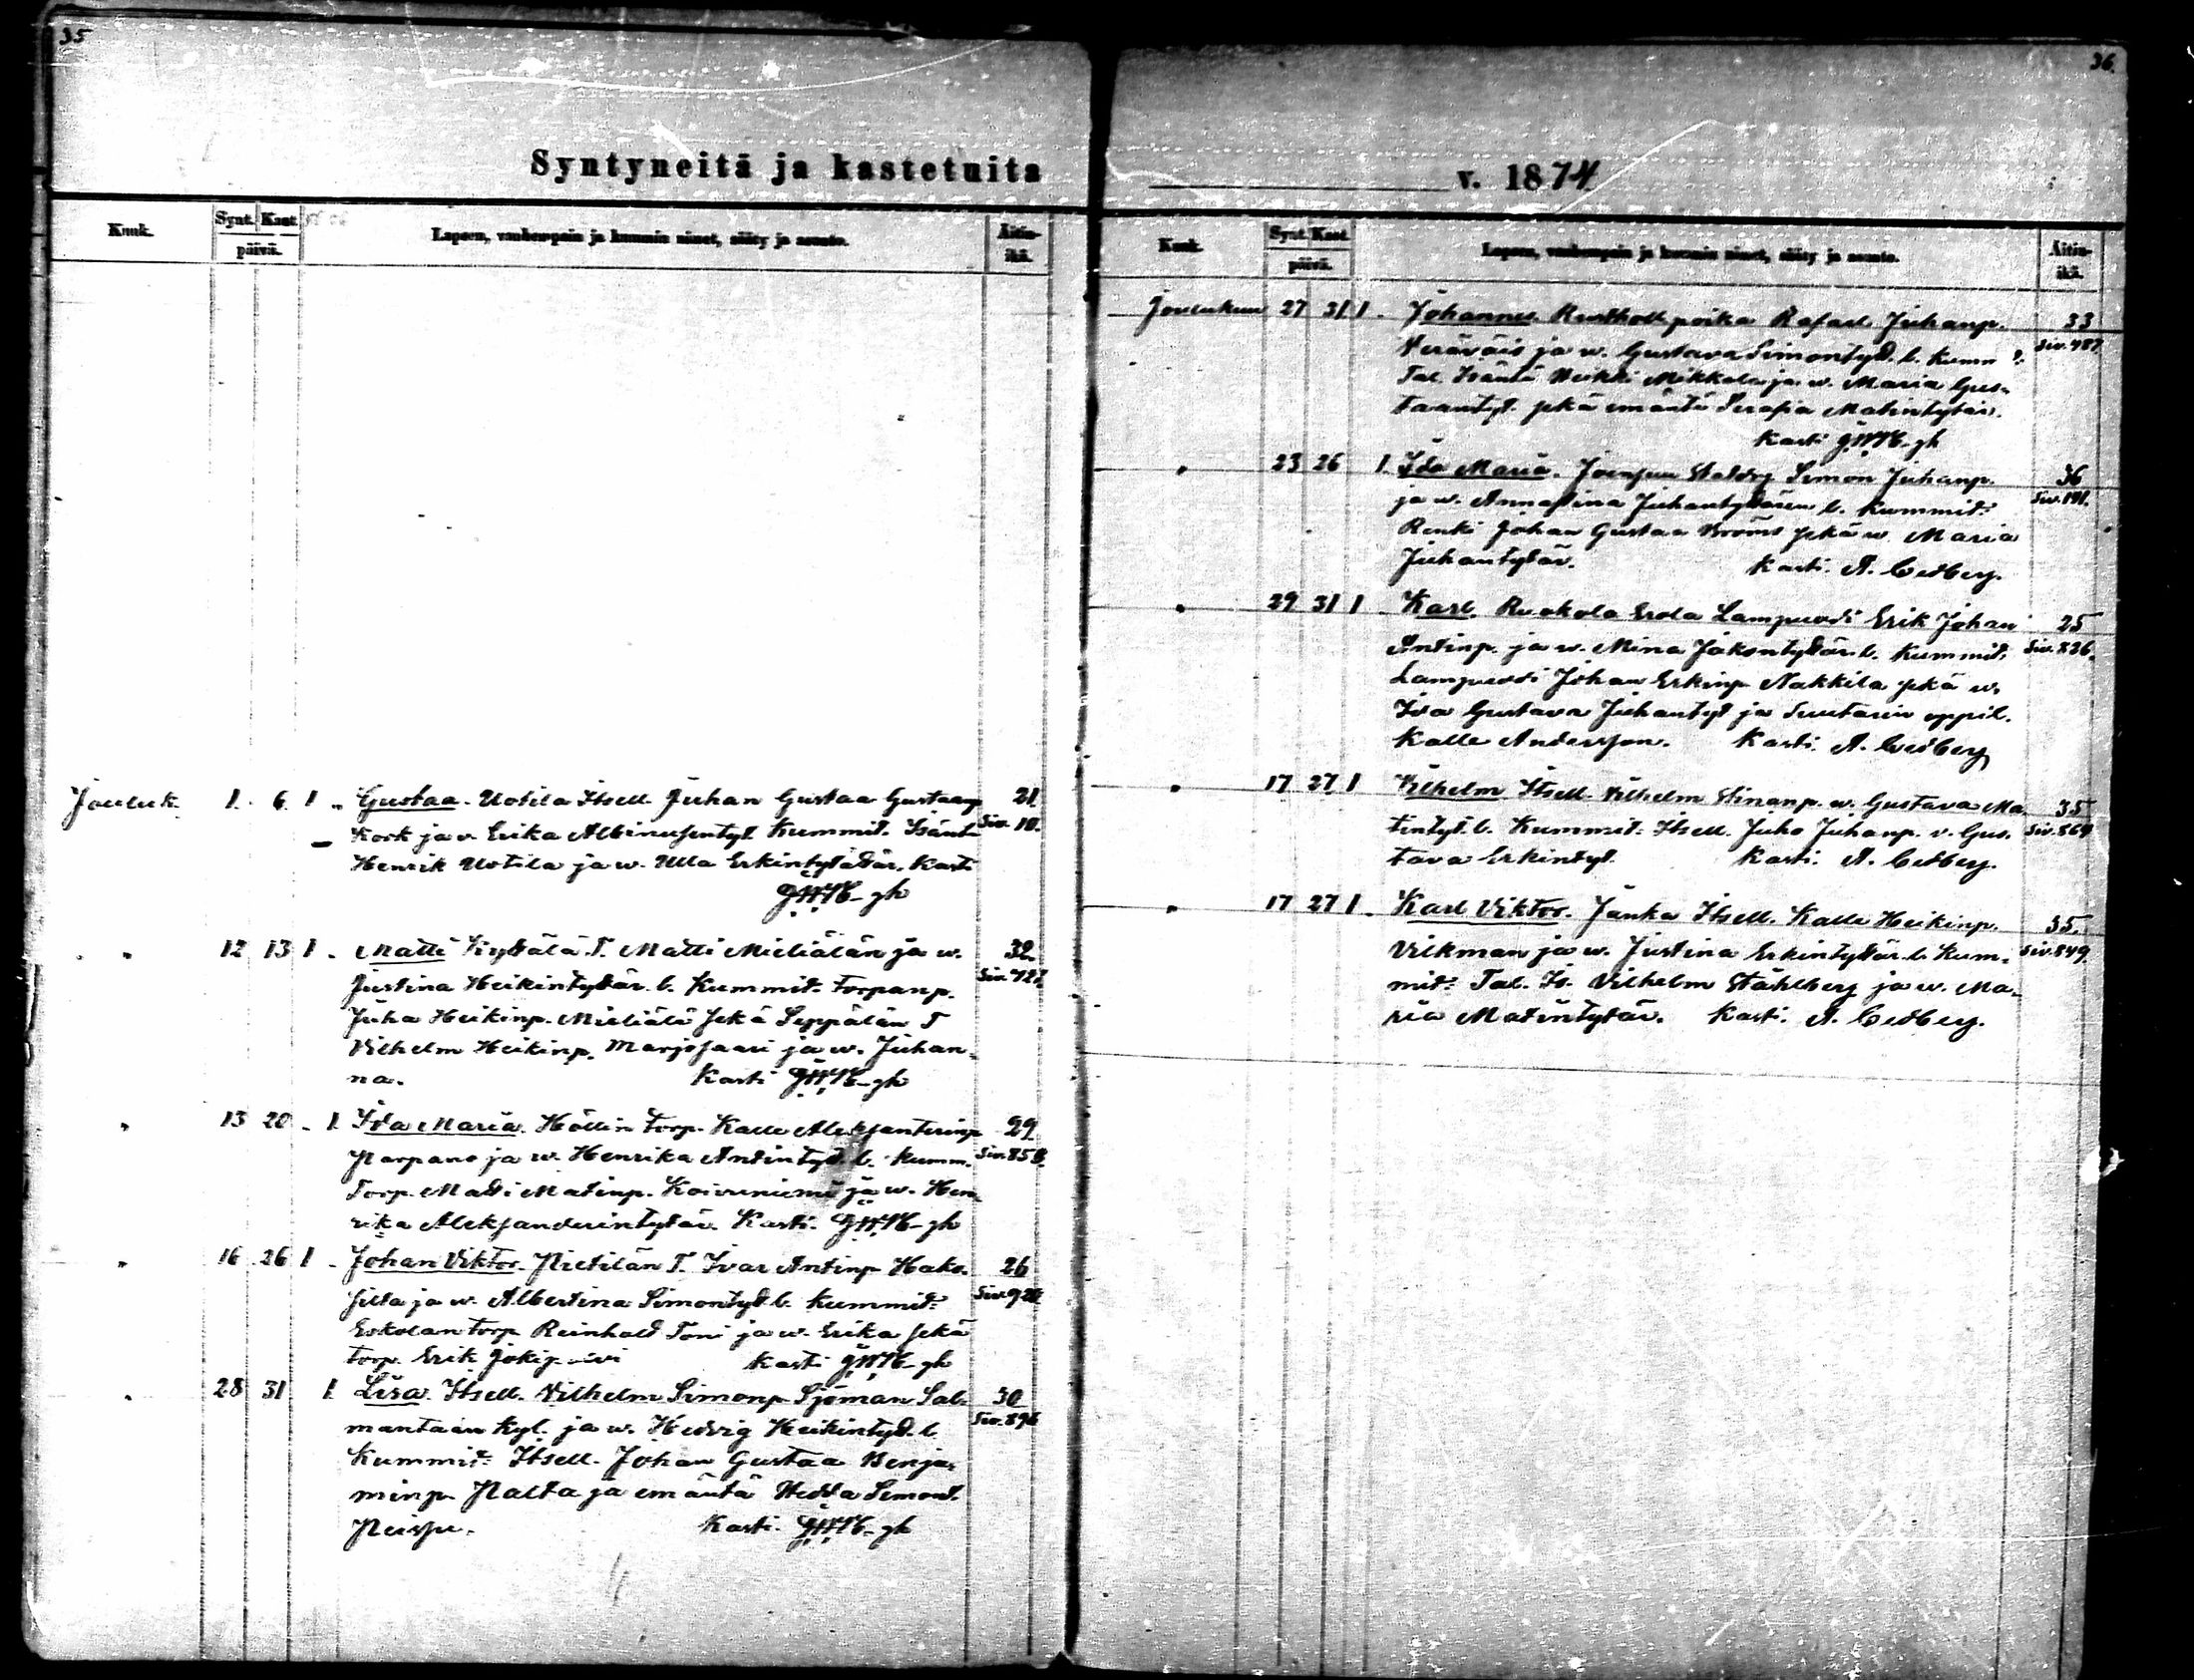 35
Syntyneitä ja kastetuita
Kuuk. Synt. Kast. päivä. Lapsen, vanhempain ja kummin nimet, sääty ja asunto. Äitin ikä.
Jouluk. 1. 6. 1 Gustaa. Uotila Itsell. Juhan Gustaa Gustaanp. 21.
Kork ja v. Erika Albinusentyt. Kummit. Isäntä Siv. 10.
Henrik Uotila ja w. Ulla Erkintytädär. Kasti
gh
" 12 13 1 Matti Kydälä T. Matti Mieliälän ja w. 32.
Justina Heikintytär. b. Kummit. Torpanp. Siv. 727.
Juha Heikinp. Mieliälä sekä Seppälän T
Vilhelm Heikinp. Marjosaari ja w. Juhan-
na. Kasti gh
" 13 20 1 Ida Maria. Höllin Torp. Kalle Aleksanterinp 29.
Parpano ja w. Henrika Antintyt. b. Kumm. Siv. 858.
Torp. Matti Matinp. Koivuniemi ja w. Hen-
rika Aleksanderintytär. Kasti. gh
" 16 26 1 Johan Viktor. Pietilän T. Ivar Antinp Hako- 26
silta ja w. Albertina Simontyt. b. Kummit: Siv. 920.
Eskolan Torp. Reinhold Toni ja w. Erika sekä
Torp. Erik Kasti gh
" 28 31 1 Lisa. Itsell. Vilhelm Simonp. Sjöman Sal- 30
mantaan kyl. ja w. Hedvig Heikintyt. b. Siv. 896
Kummit: Itsell. Johan Gustaa Benja-
minp. Palta ja emäntä Hedda Simont.
Peispu. Kasti. gh
36.
v. 1874
Kuuk. Synt. Kast. päivä. Lapsen, vanhempain ja kummin nimet, sääty ja asunto. Äitin ikä.
Joulukuu 27 31 1 Johannes. Rusthollpoika Rafael Juhanp. 33
ja w. Gustava Simontyt. b. Kumm: Siv. 487
Tal. Isäntä Heikki Mikkola ja w. Maria Gus-
taantyt. sekä emäntä Serafia Matintytär.
Kasti gh
" 23 26 1 Ida Maria. Joensuu Simon Juhanp. 36
ja w. Annastina Juhantytären b. Kummit: Siv. 191.
Renki Johan Gustaa Broms sekä w. Maria
Juhantytär. Kasti. A. Cedberg.
" 29 31 1 Karl. Ruokola Erola Lampuodi Erik Johan 25
Antinp. ja w. Mina Jakontytär b. Kummit. Siv. 826.
Lampuodi Johan Erkinp Nakkila sekä w.
Iva Gustava Juhantyt ja Suutarin oppil.
Kalle Andersson. Kasti. A. Cedberg
" 17 27 1 Vilhelm Itsell. Vilhelm Stinanp. w. Gustava Ma- 35
tintyt. b. Kummit: Itsell. Juho Juhanp. v. Gus- Siv. 864
tava Erkintyt. Kasti. A. Cedberg.
" 17 27 1 Karl Viktor. Junka Itsell. Kalle Heikinp. 35.
Vilkman ja w. Justina Erkintytär b. Kum- Siv. 849
mit: Tal. Is. Vilhelm Ståhlberg ja w. Ma-
ria Matintytär. Kasti. A. Cedberg.